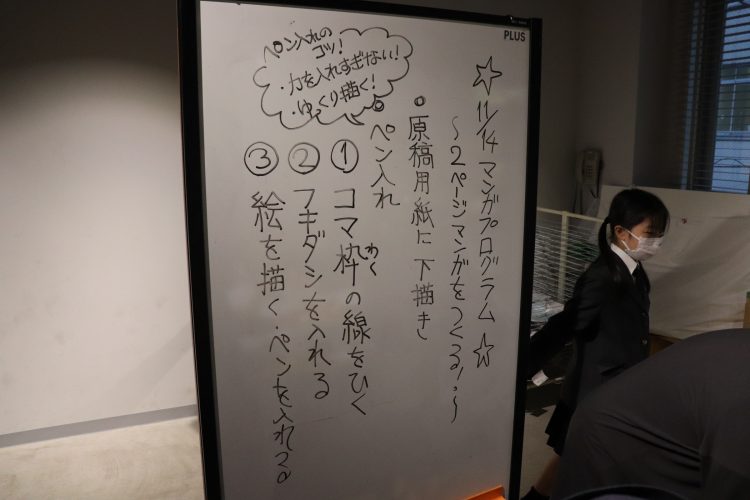 PLUS
☆11/14 マンガプログラム☆
～2ページマンガをつくる！～
○原稿用紙に下描き
○ペン入れ
①コマ枠の線をひく
わく
②フキダシを入れる
③絵を描く・ペンを入れる
ペン入れの
コツ！
・力を入れすぎない！
・ゆっくり描く！